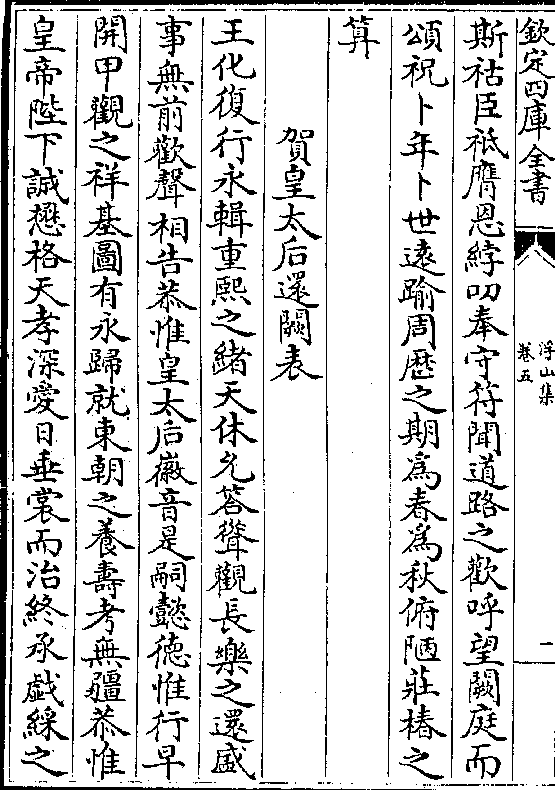 欽定四庫全書
浮山集
卷五
一
斯祜臣祗膺恩綍叨奉守符聞道路之歡呼望闕庭而
頌祝卜年卜世遠踰周歴之期爲春爲秋俯陋莊椿之
算
賀皇太后還闕表
王化復行永輯重熙之緒天休允答聳觀長樂之還盛
事無前歡聲相告恭惟皇太后徽音是嗣懿德惟行早
開甲觀之祥基圖有永歸就東朝之養壽考無疆恭惟
皇帝陛下誠懋格天孝深愛日垂裳而治終承戱綵之